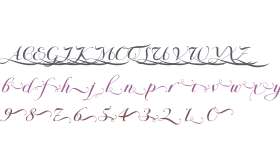 ACEGIKMOQSUVWXYZ
bdfhjlnprtvwxy
9 8 7 6 5 4 3 2 1 0